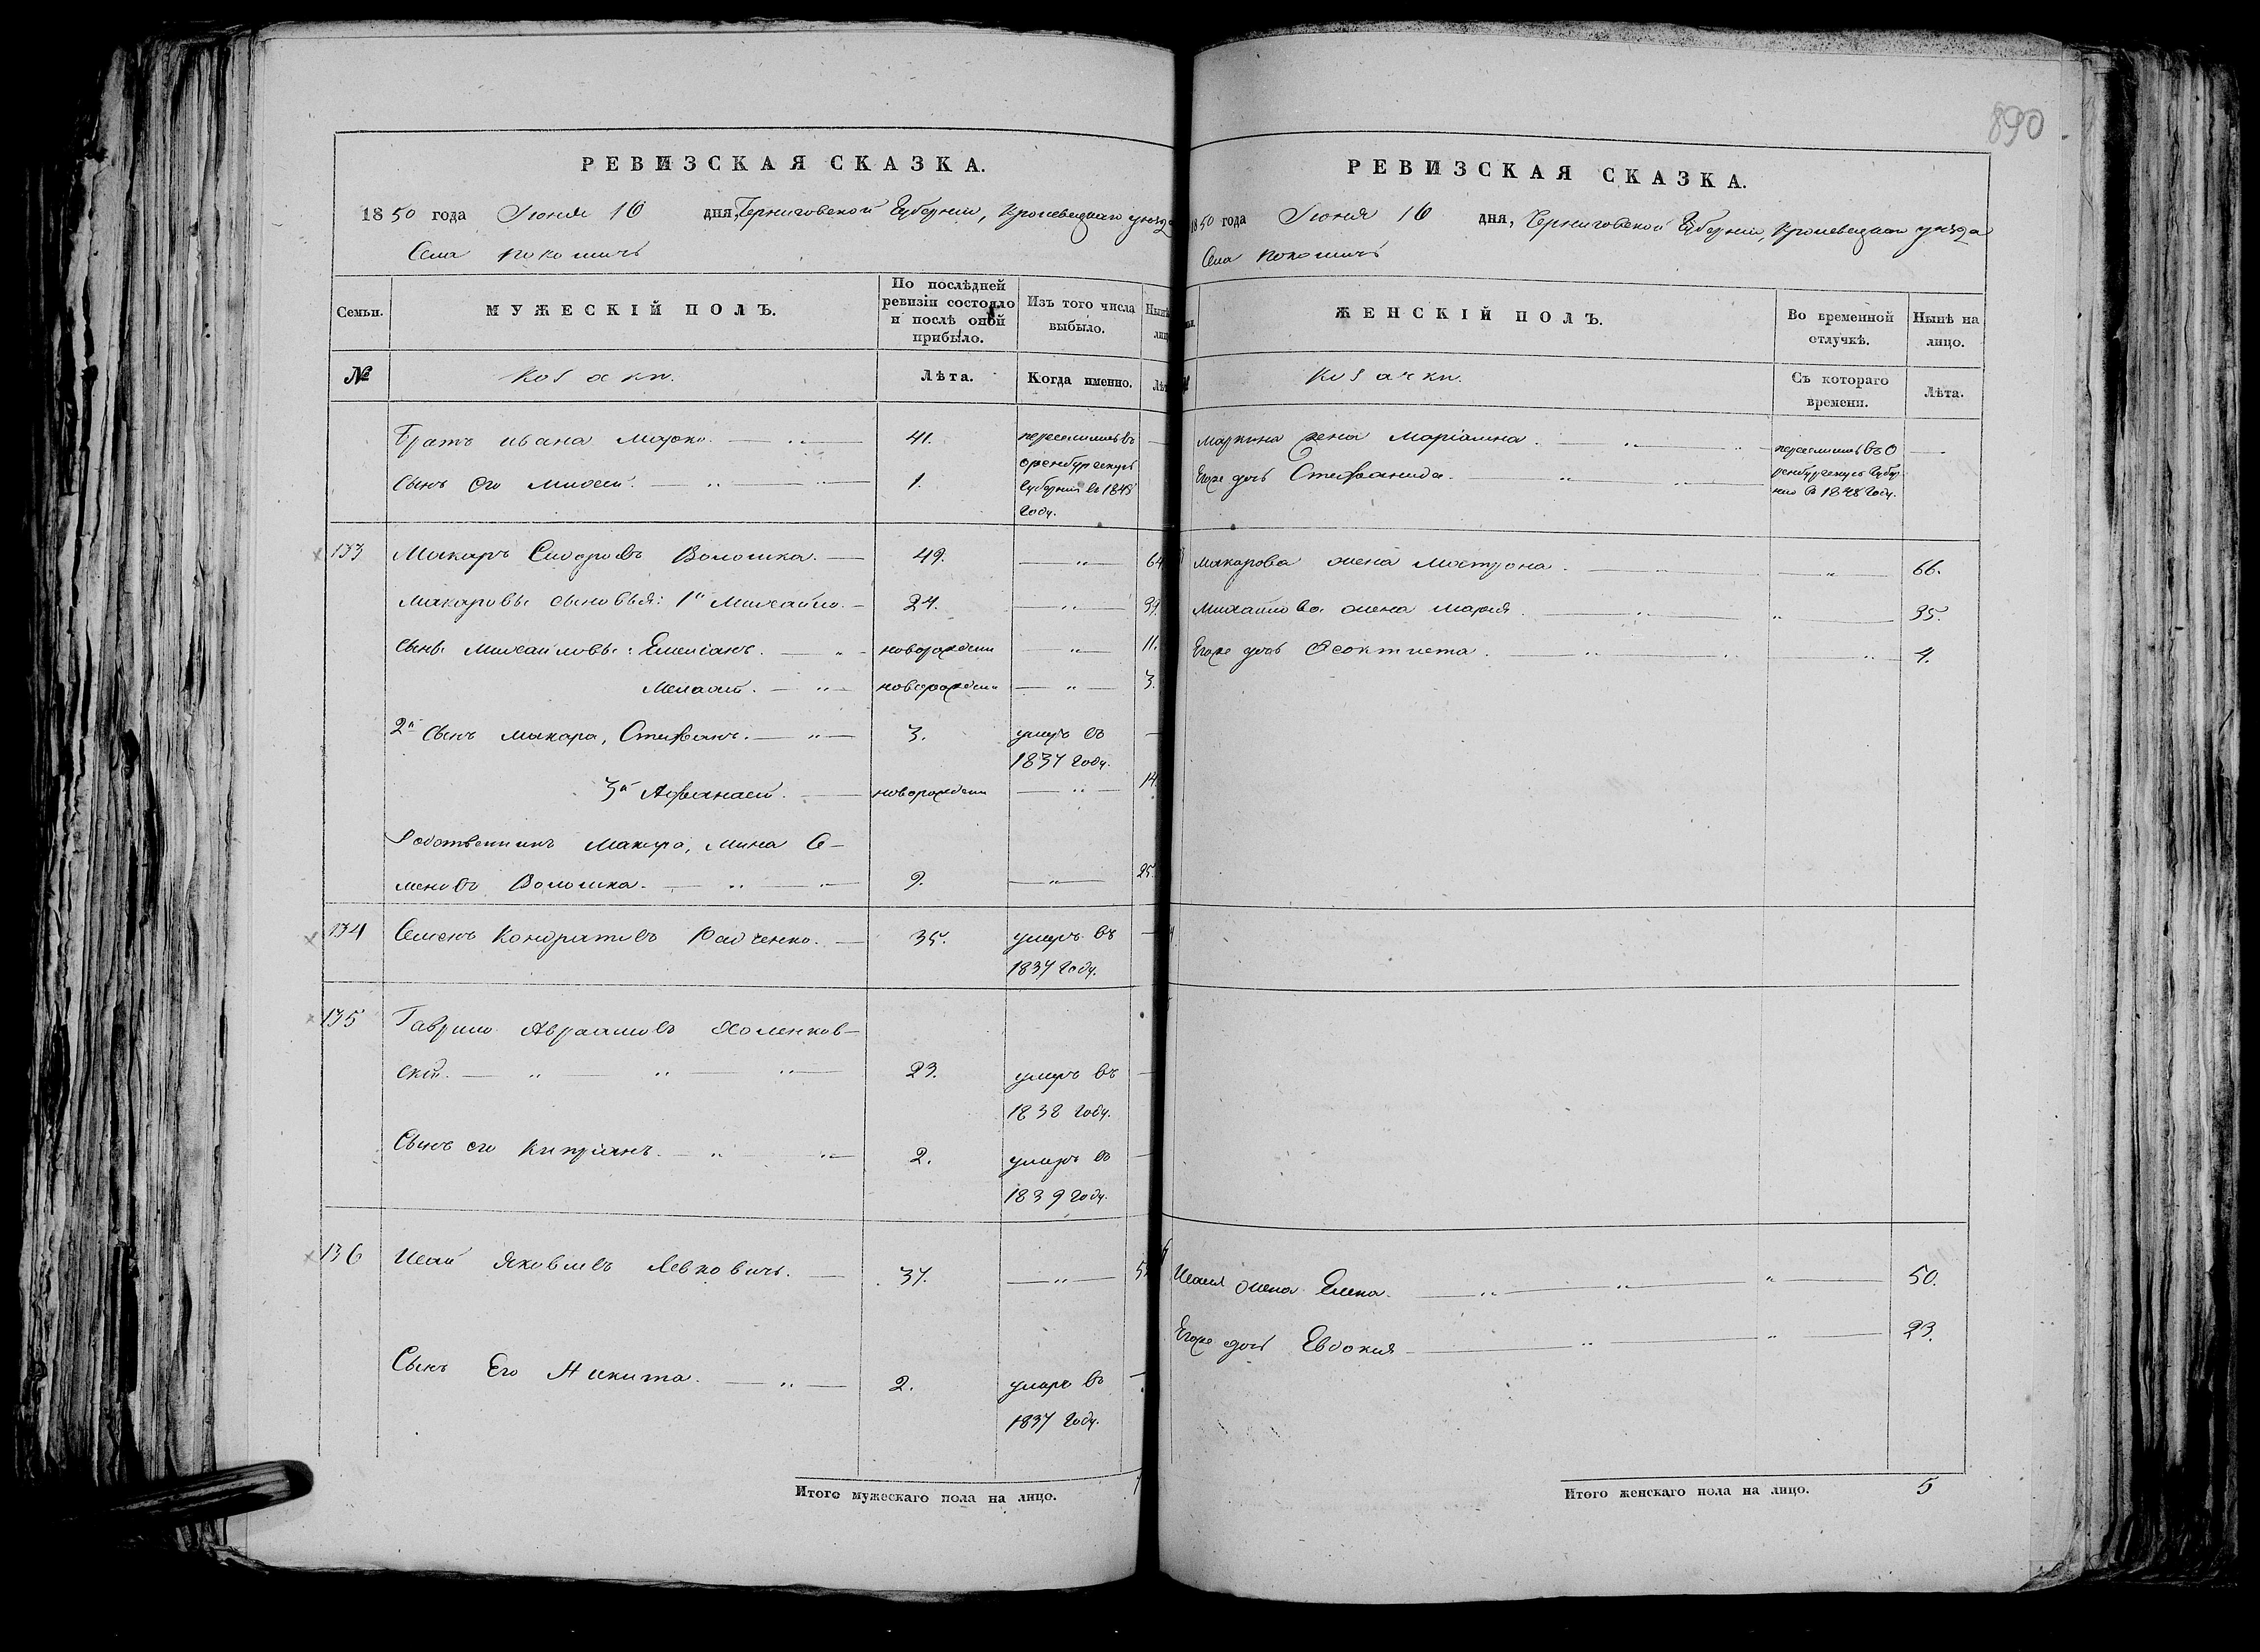 890
РЕВИЗСКАЯ СКАЗКА.
1850 года Іюня 16 дня, Черниговской Губерніи, Кролевецкаго уезда
Села Покошичъ
Семьи.
МУЖЕСКІЙ ПОЛЪ.
По послѣдней ревизіи состояло и послѣ оной прибыло.
Изъ того числа выбыло.
№
Козаки.
Лѣта.
Когда именно.
Братъ Ивана Марко. 41. переселились въ
оренбургскую
Сынъ Его Михей. 1. Губернію въ 1848
Году.
133 Макаръ Сидоровъ Волошка. 49. 64
Макаровы сыновья: 1й Михайло. 24. 39.
Сынъ Михайловы: Емеліанъ. новорожден 11.
Мелетій. новорожден 3.
2й Сынъ Макара, Стефанъ. 3. умеръ въ
1837 Году.
3й Афанасій. новорожден 14.
Родственникъ Макара, Мина Се-
меновъ Волошка. 9. 25.
134 Семенъ Кондратиевъ Радченко. 35. умеръ въ
1837 Году.
135 Гаврило Авраамовъ Холенков-
скій. 23. умеръ въ
1838 Году.
Сынъ его Кипріянъ. 2. умеръ въ
1839 Году.
136 Исай Яковлевъ Левковичъ. 37.
Сынъ Его Никита. 2. умеръ въ
1837 Году.
Итого мужескаго пола на лицо.
РЕВИЗСКАЯ СКАЗКА.
1850 года Іюня 16 дня, Черниговской Губерніи, Кролевецкаго уезда
Села Покошичъ
ЖЕНСКІЙ ПОЛЪ.
Во временной отлучкѣ.
Нынѣ на лицо.
Козачки.
Съ котораго времени.
Лѣта.
Маркина жена Маріамна. переселились въ О
Егоже дочь Стефанида. ренбургскую Губер
нію въ 1848 Году.
Макарова жена Мотрона. 66.
Михайлова жена Мария. 35.
Егоже дочь Феоктиста. 4.
Исаия жена Елена. 50.
Егоже дочь Евдокия 23.
Итого женскаго пола на лицо. 5